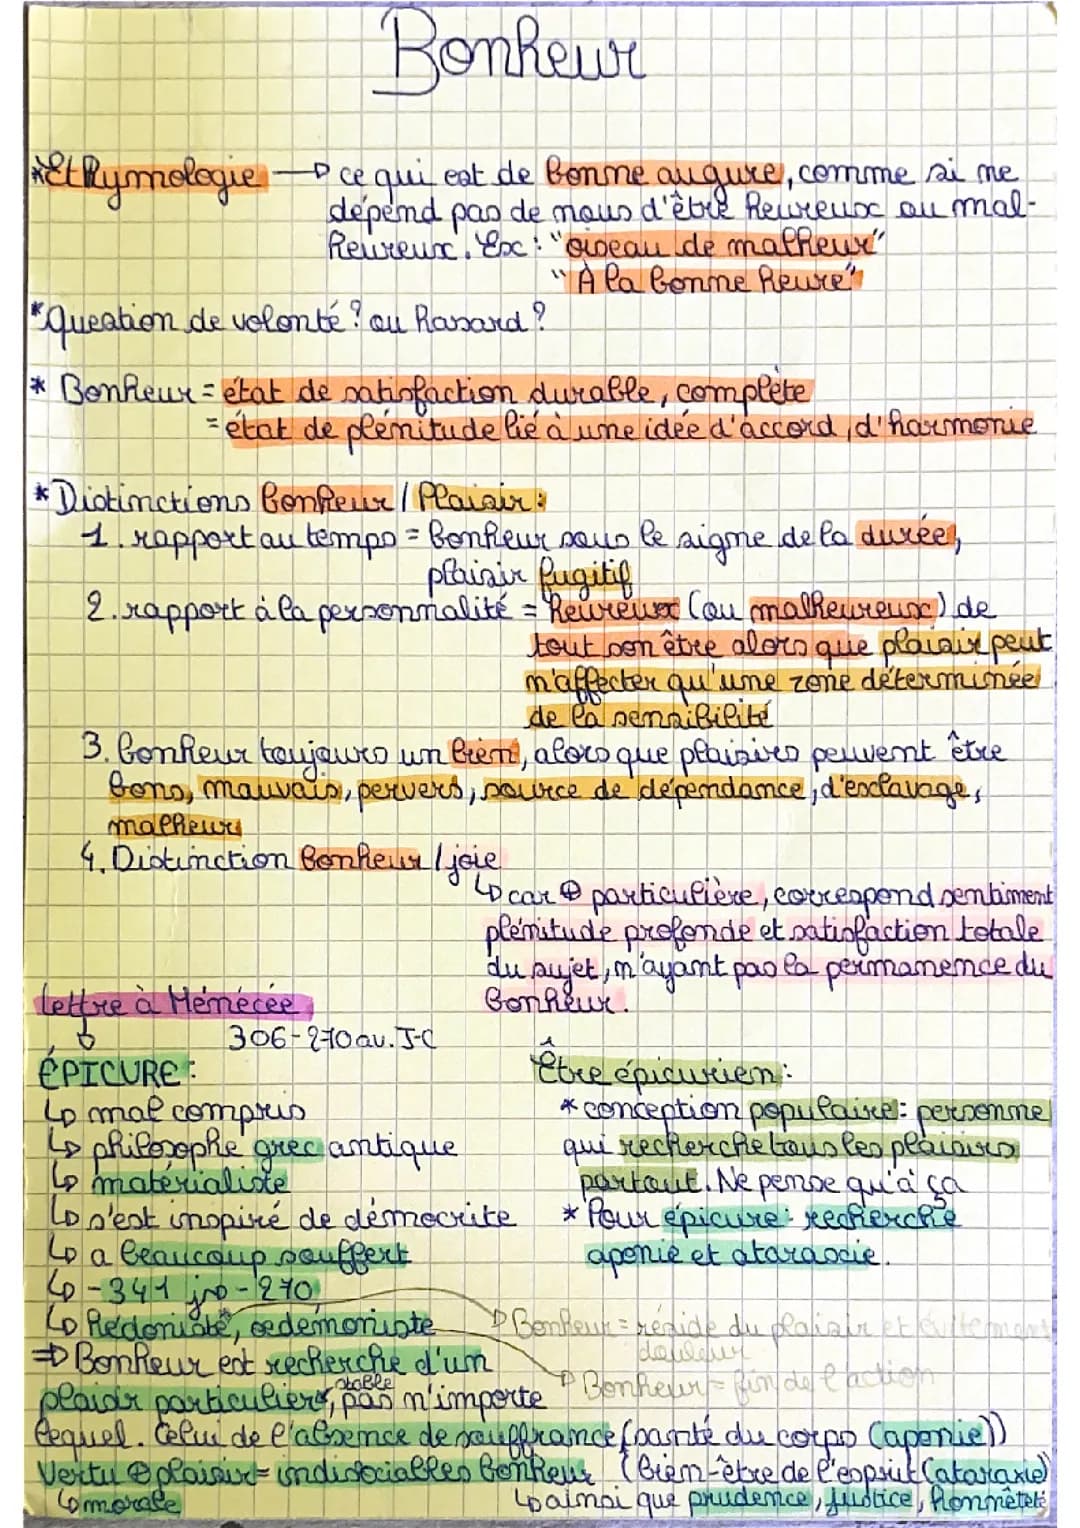 Bonheur
*Ethymologie → ce qui est de bonne augure, comme si ne
dépend pas de nous d'être heureux ou mal-
heureux. Ex : "oiseau de malheur"
"À la bonne heure"
*Question de volonté ? ou hasard ?
* Bonheur = état de satisfaction durable, complète
= état de plénitude lié à une idée d'accord, d'harmonie
* Distinctions bonheur / Plaisir :
1. rapport au temps = bonheur sous le signe de la durée,
plaisir fugitif
2. rapport à la personnalité = heureux (ou malheureux) de
tout son être alors que plaisir peut
n'affecter qu'une zone déterminée
de la sensibilité
3. bonheur toujours un bien, alors que plaisirs peuvent être
bons, mauvais, pervers, source de dépendance, d'esclavage,
malheurs
4. Distinction bonheur / joie
↳ car ⊕ particulière, correspond sentiment
plénitude profonde et satisfaction totale
du sujet, n'ayant pas la permanence du
bonheur.
lettre à Ménécée
306-270 av. J-C
ÉPICURE :
↳ mal compris
↳ philosophe grec antique
↳ matérialiste
↳ s'est inspiré de démocrite
↳ a beaucoup souffert
↳ -341 jsp -270
↳ hédoniste, oedémoniste
⇒ Bonheur est recherche d'un
plaisir particuliers, stable pas n'importe
lequel. Celui de l'absence de souffrance (santé du corps (aponie))
Vertu ⊕ plaisir = indissociables bonheur (bien-être de l'esprit (ataraxie)
↳ morale
↳ ainsi que prudence, justice, honnêteté
Être épicurien :
* conception populaire : personne
qui recherche tous les plaisirs
partout. Ne pense qu'à ça
* Pour épicure : recherche
aponie et ataraxie.
→ Bonheur = réside du plaisir et évitement
douleur
→ Bonheur = fin de l'action